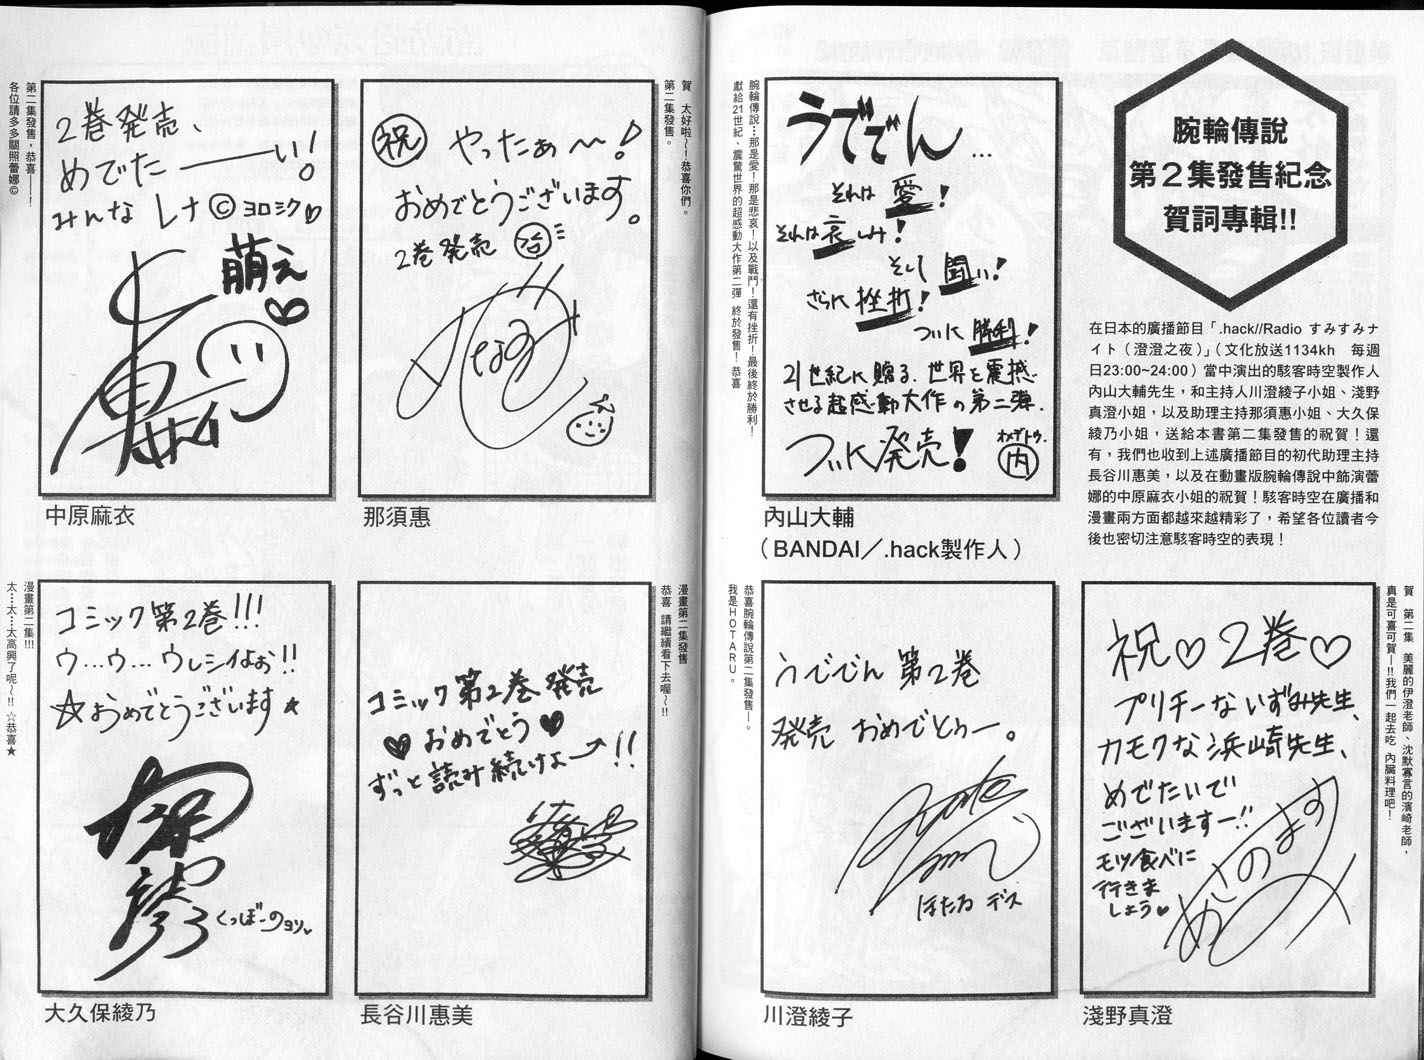 腕輪傳說
第2集發售紀念
賀詞專輯!!
在日本的廣播節目「.hack//Radio すみすみナ
イト（澄澄之夜）」（文化放送1134kh　每週
日23:00~24:00）當中演出的駭客時空製作人
內山大輔先生，和主持人川澄綾子小姐、淺野
真澄小姐，以及助理主持那須惠小姐、大久保
綾乃小姐，送給本書第二集發售的祝賀！還
有，我們也收到上述廣播節目的初代助理主持
長谷川惠美，以及在動畫版腕輪傳說中飾演蕾
娜的中原麻衣小姐的祝賀！駭客時空在廣播和
漫畫兩方面都越來越精彩了，希望各位讀者今
後也密切注意駭客時空的表現！
うででん…
それは 愛！
それは 哀しみ！
そして 闘い！
さらに 挫折！
ついに 勝利！
21世紀に贈る、世界を震撼
させる超感動大作の第二弾.
ついに発売！
オメデトウ.
内
腕輪傳說…那是愛！那是悲哀！以及戰鬥！還有挫折！最後終於勝利！
獻給21世紀、震驚世界的超感動大作第二彈 終於發售！恭喜
內山大輔
（BANDAI／.hack製作人）
賀　第二集　美麗的伊澄老師、沈默寡言的濱崎老師，
真是可喜可賀—!!我們一起去吃 內臟料理吧！
祝♡2巻♡
プリチーないずみ先生、
カモクな浜崎先生、
めでたいで
ございますー!!
モツ食べに
行きま
しょう♥
淺野真澄
うででん 第2巻
発売 おめでとうー。
ほたる デス
恭喜腕輪傳說第二集發售—。
我是HOTARU。
川澄綾子
賀　太好啦～！恭喜你們。
第二集發售。
祝 やったぁ〜！
おめでとうございます。
2巻発売
那須惠
2巻発売、
めでたーーい！
みんな レナ©ヨロシク♡
萌え
♡
第二集發售，恭喜——！
各位請多多關照蕾娜©
中原麻衣
漫畫第二集發售
恭喜 請繼續看下去喔～!!
コミック第2巻 発売
♥おめでとう♥
ずっと読み続けよー→!!
長谷川惠美
コミック第2巻!!!
ウ…ウ…ウレシイよぉ!!
☆おめでとうございます★
くっぼーのヨソ
漫畫第二集!!!
太…太…太高興了呢～!! ☆恭喜★
大久保綾乃